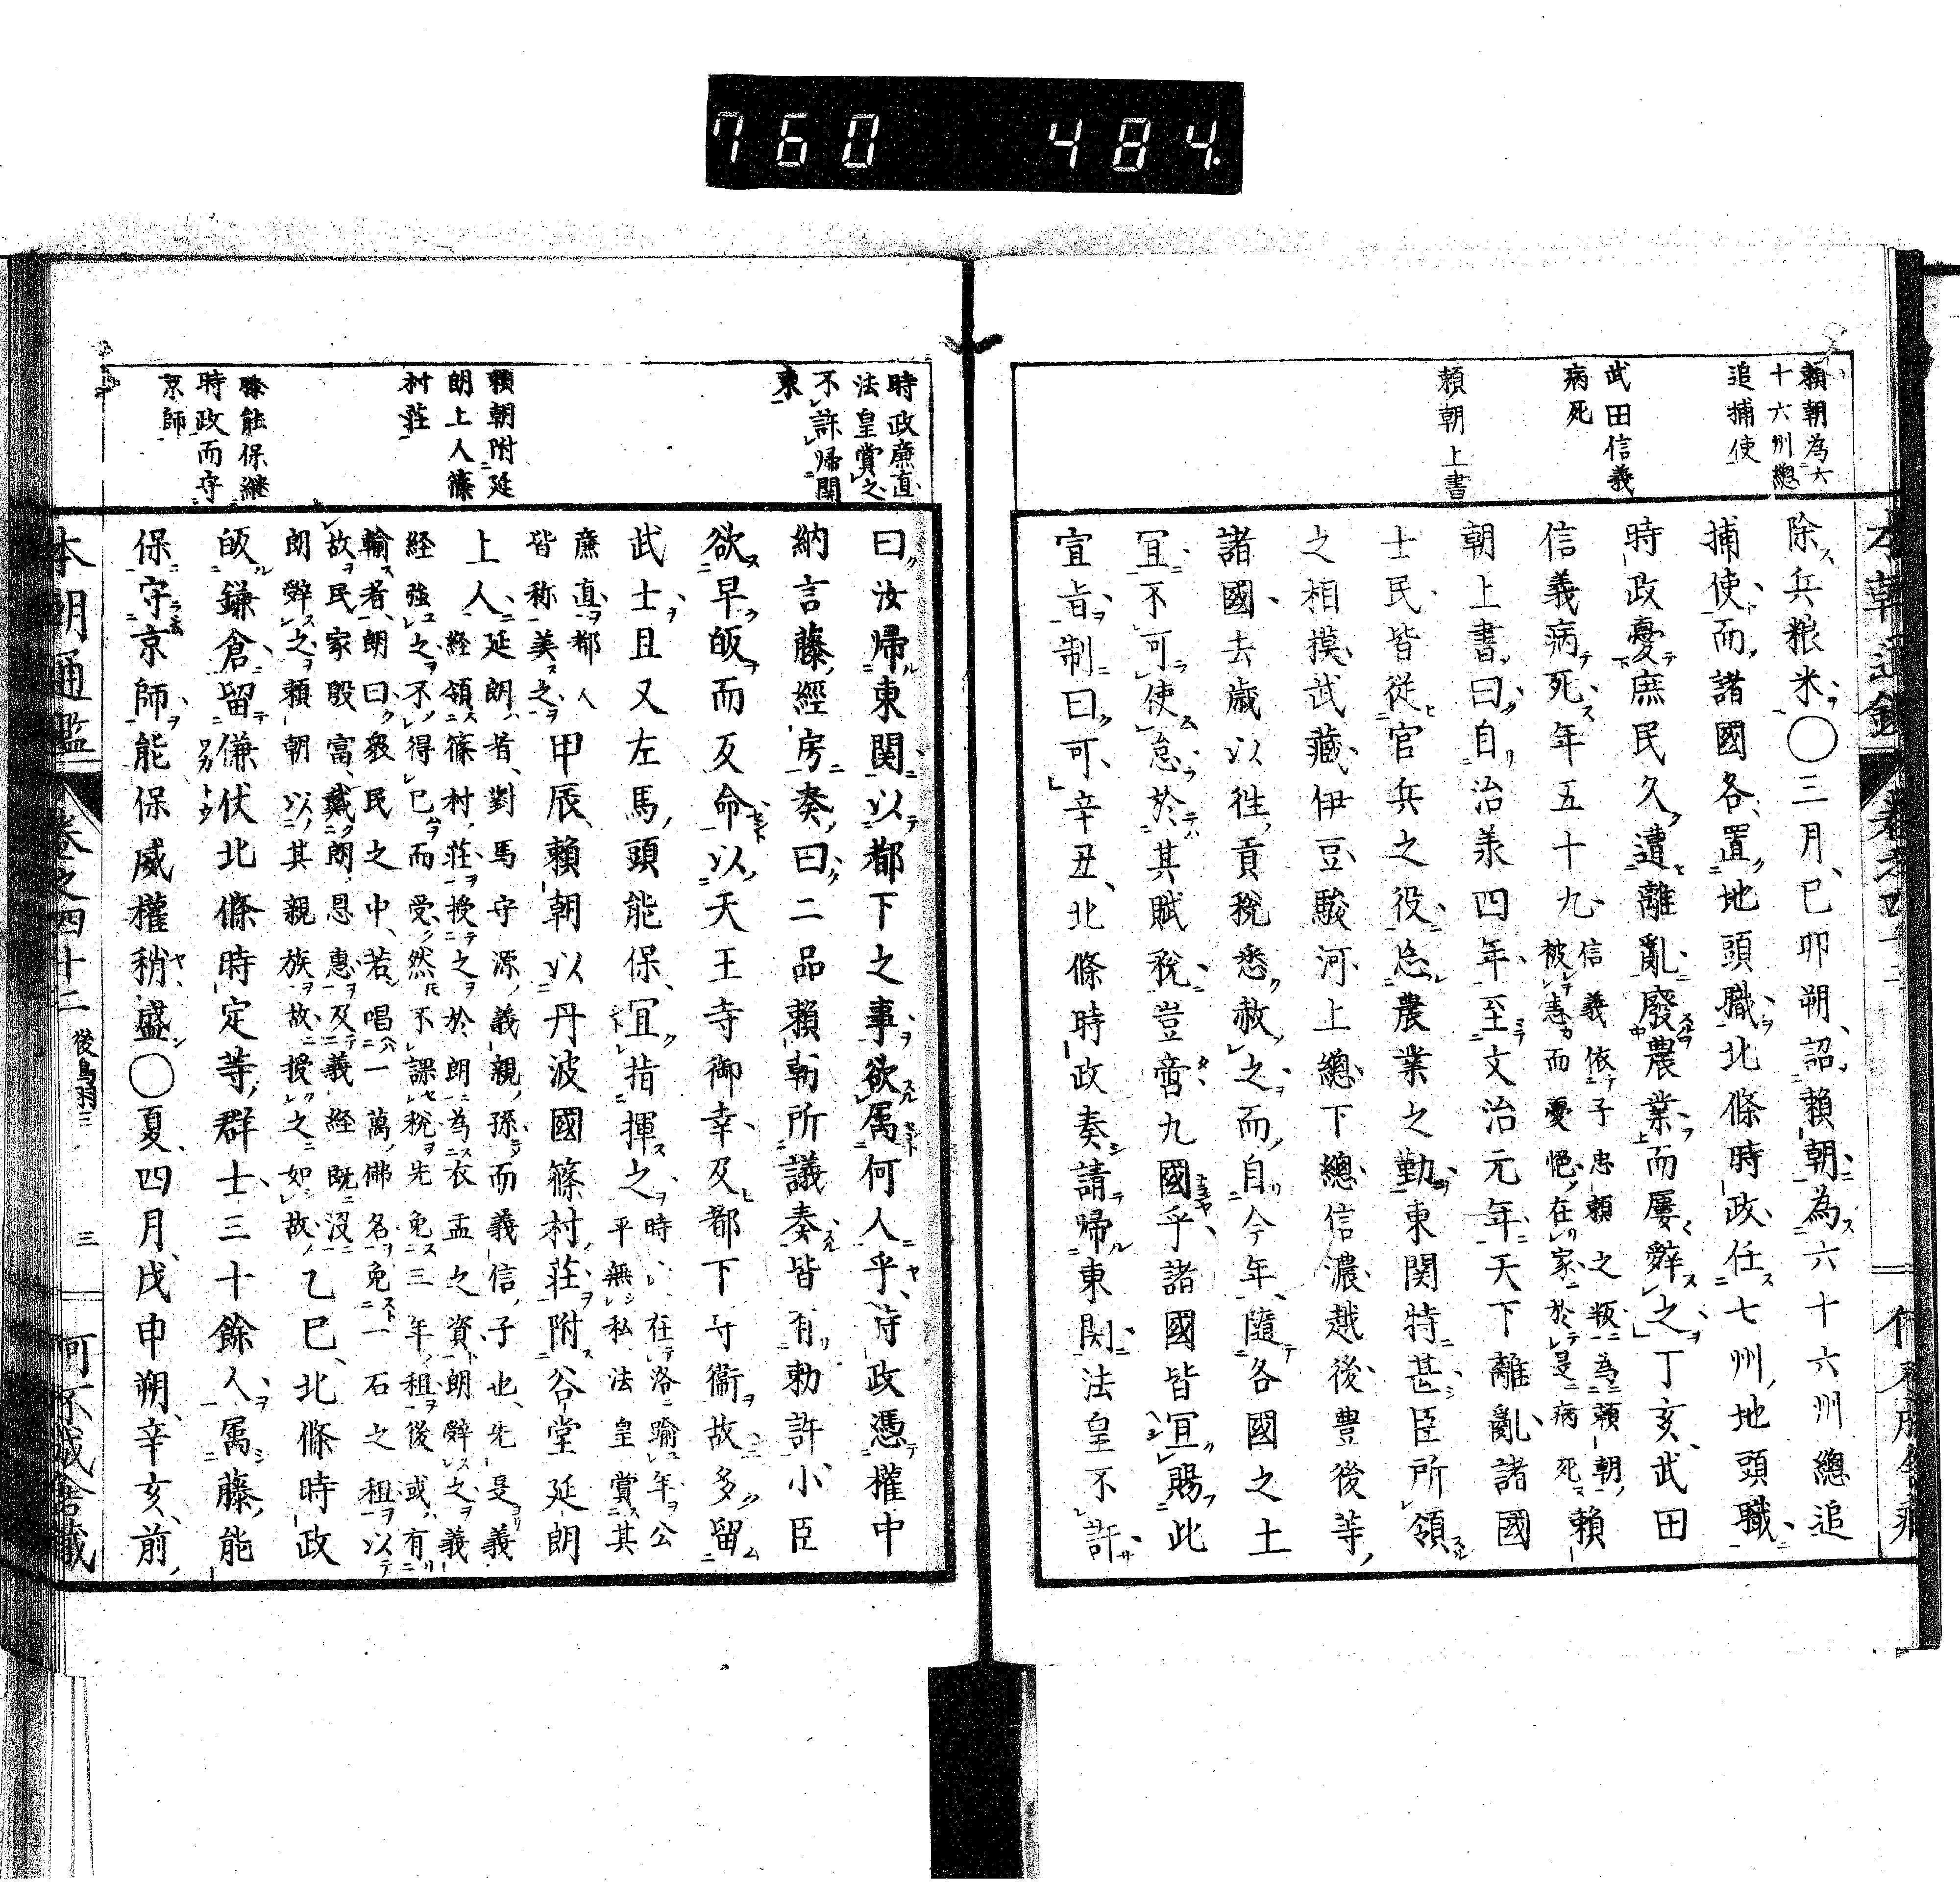 760 484
頼朝為六
十六州總
追捕使
武田信義
病死
頼朝上書
除兵粮米○三月己卯朔詔頼朝為六十六州總追
捕使而諸國各置地頭職北條時政任七州地頭職
時政憂庶民久遭離亂廢農業而屢辭之丁亥武田
信義病死年五十九
信義依子忠頼之叛為頼朝
被恚而憂悒在家於是病死
頼
朝上書曰自治羕四年至文治元年天下離亂諸國
士民皆從官兵之役忘農業之勤東関特甚臣所領
之相摸武藏伊豆駿河上總下總信濃越後豊後等
諸國去歳以徃貢稅悉赦之而自今年隨各國之土
宜不可使怠於其賦稅豈啻九國乎諸國皆宜賜此
宣旨制曰可辛丑北條時政奏請帰東関法皇不許
時政廉直
法皇賞之
不許帰関
東
頼朝附延
朗上人篠
村莊
藤能保継
時政而守
京師
曰汝帰東関以都下之事欲属何人乎時政憑權中
納言藤經房奏曰二品頼朝所議奏皆有勅許小臣
欲早皈而反命以天王寺御幸及都下守衞故多留
武士且又左馬頭能保宜指揮之
時政在洛踰年公
平無私法皇賞其
廉直都人
皆称美之
甲辰頼朝以丹波國篠村莊附谷堂延朗
上人
延朗者對馬守源義親孫而義信子也先是義
経領篠村莊授之於朗為衣盂之資朗辭之義
経強之不得已而受然不課稅先免三年租後或有
輸者朗曰毅民之中若唱一萬佛名免一石之租以
故民家殷富戴朗恩惠及義経既沒
朗辭之頼朝以其親族故授之如故
乙巳北條時政
皈鎌倉留傔伏北條時定等群士三十餘人属藤能
保守京師能保威權稍盛○夏四月戊申朔辛亥前
本朝通鑑
卷之四十二
後鳥羽三
三